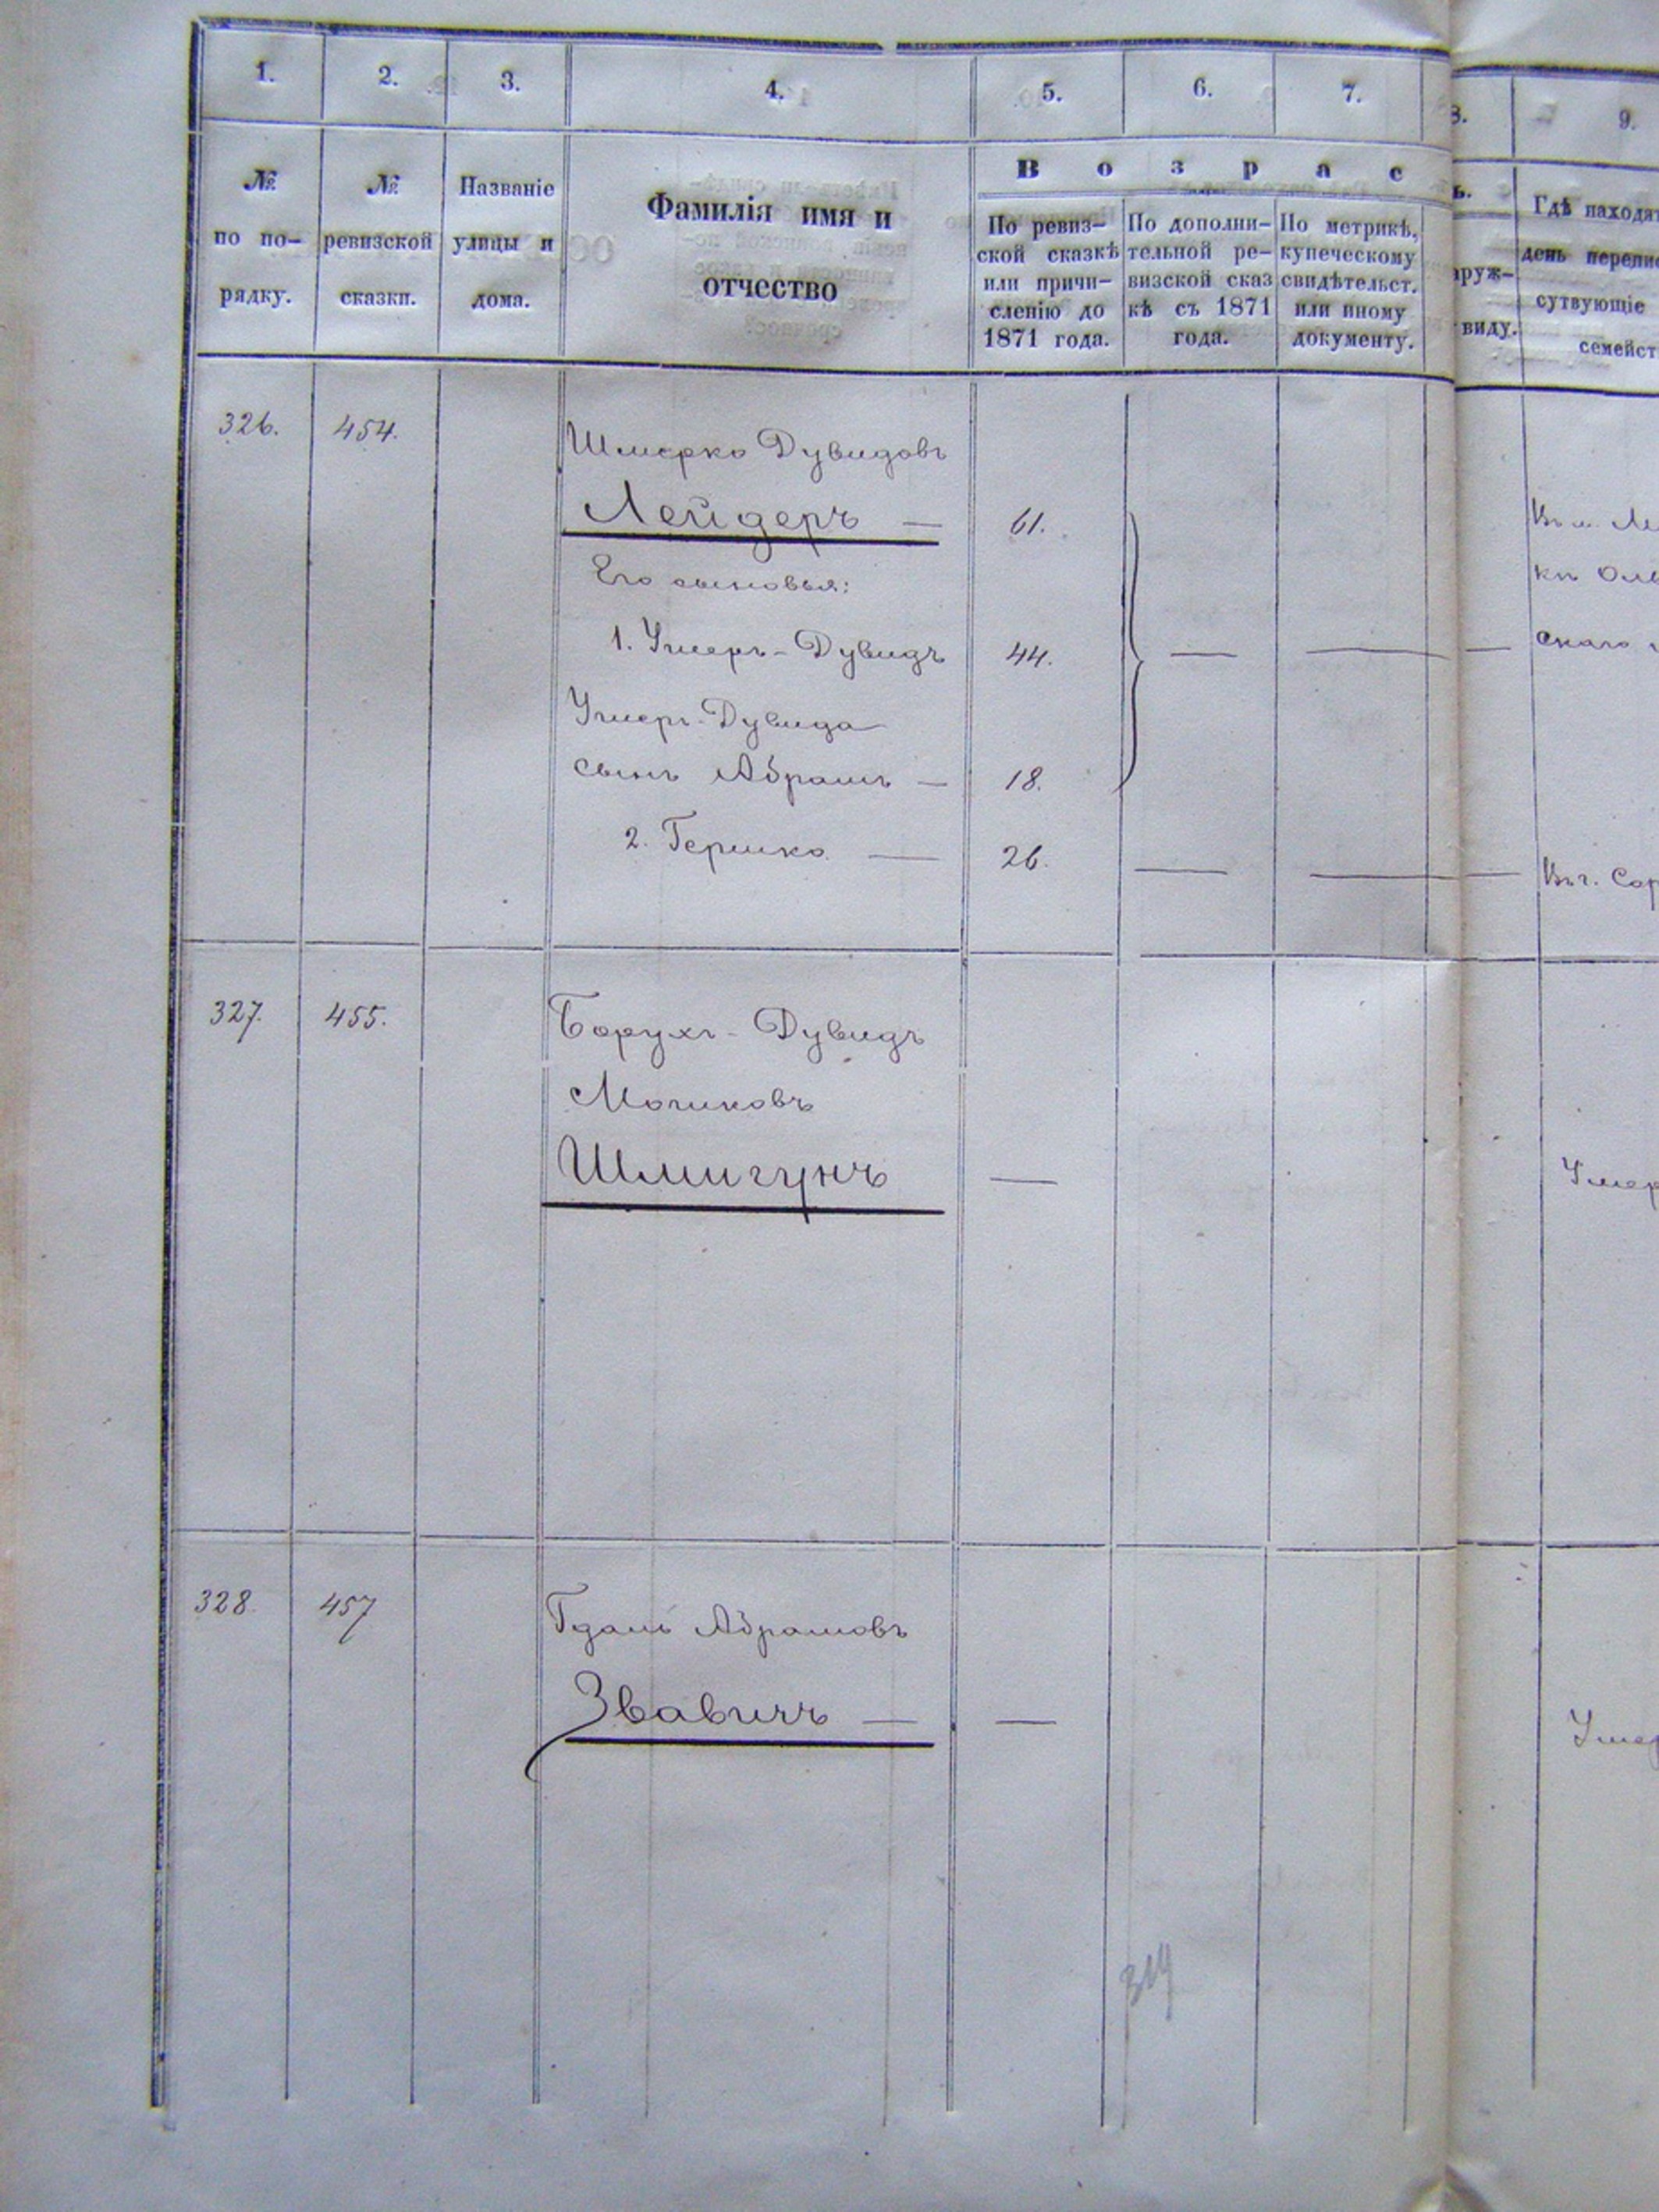 1. 2. 3. 4. 5. 6. 7. 8. 9.
№ по по-рядку.
№ ревизской сказки.
Названіе улицы и дома.
Фамилія имя и отчество
В о з р а с
По ревиз-ской сказкѣ или причи-сленію до 1871 года.
По дополни-тельной ре-визской сказ кѣ съ 1871 года.
По метрикѣ, купеческому свидѣтельст. или иному документу.
ь.
аруж-
виду.
Гдѣ находят
день перепис
сутвующіе
семейст
326. 454. Шмерко Дувидовъ
Лейдеръ — 61.
Его сыновья:
1. Умеръ-Дувидъ 44. — — —
Умеръ-Дувида
сынъ Абрамъ — 18.
2. Гершко — 26. — — —
скаго
327. 455. Борухъ-Дувидъ
Мошковъ
Шмигунъ —
Умер
328. 457 Гдаль Абрамовъ
Звавичъ — —
Умер
319